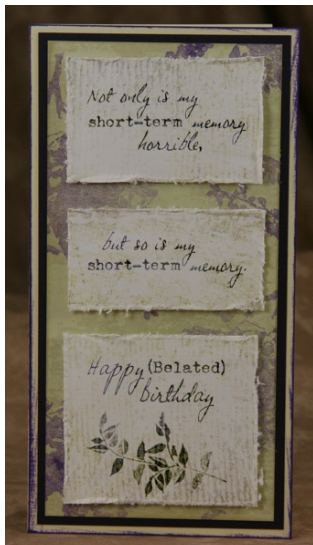 Not only is my
short-term memory
horrible,
but so is my
short-term memory.
Happy (Belated)
birthday